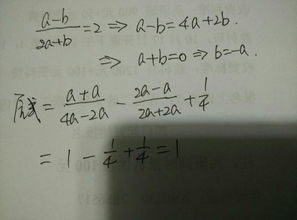 (a-b)/(2a+b)=2 ⇒ a-b=4a+2b.
⇒ a+b=0 ⇒ b=-a.
原式 = (a+a)/(4a-2a) - (2a-a)/(2a+2a) + 1/4
= 1 - 1/4 + 1/4 = 1